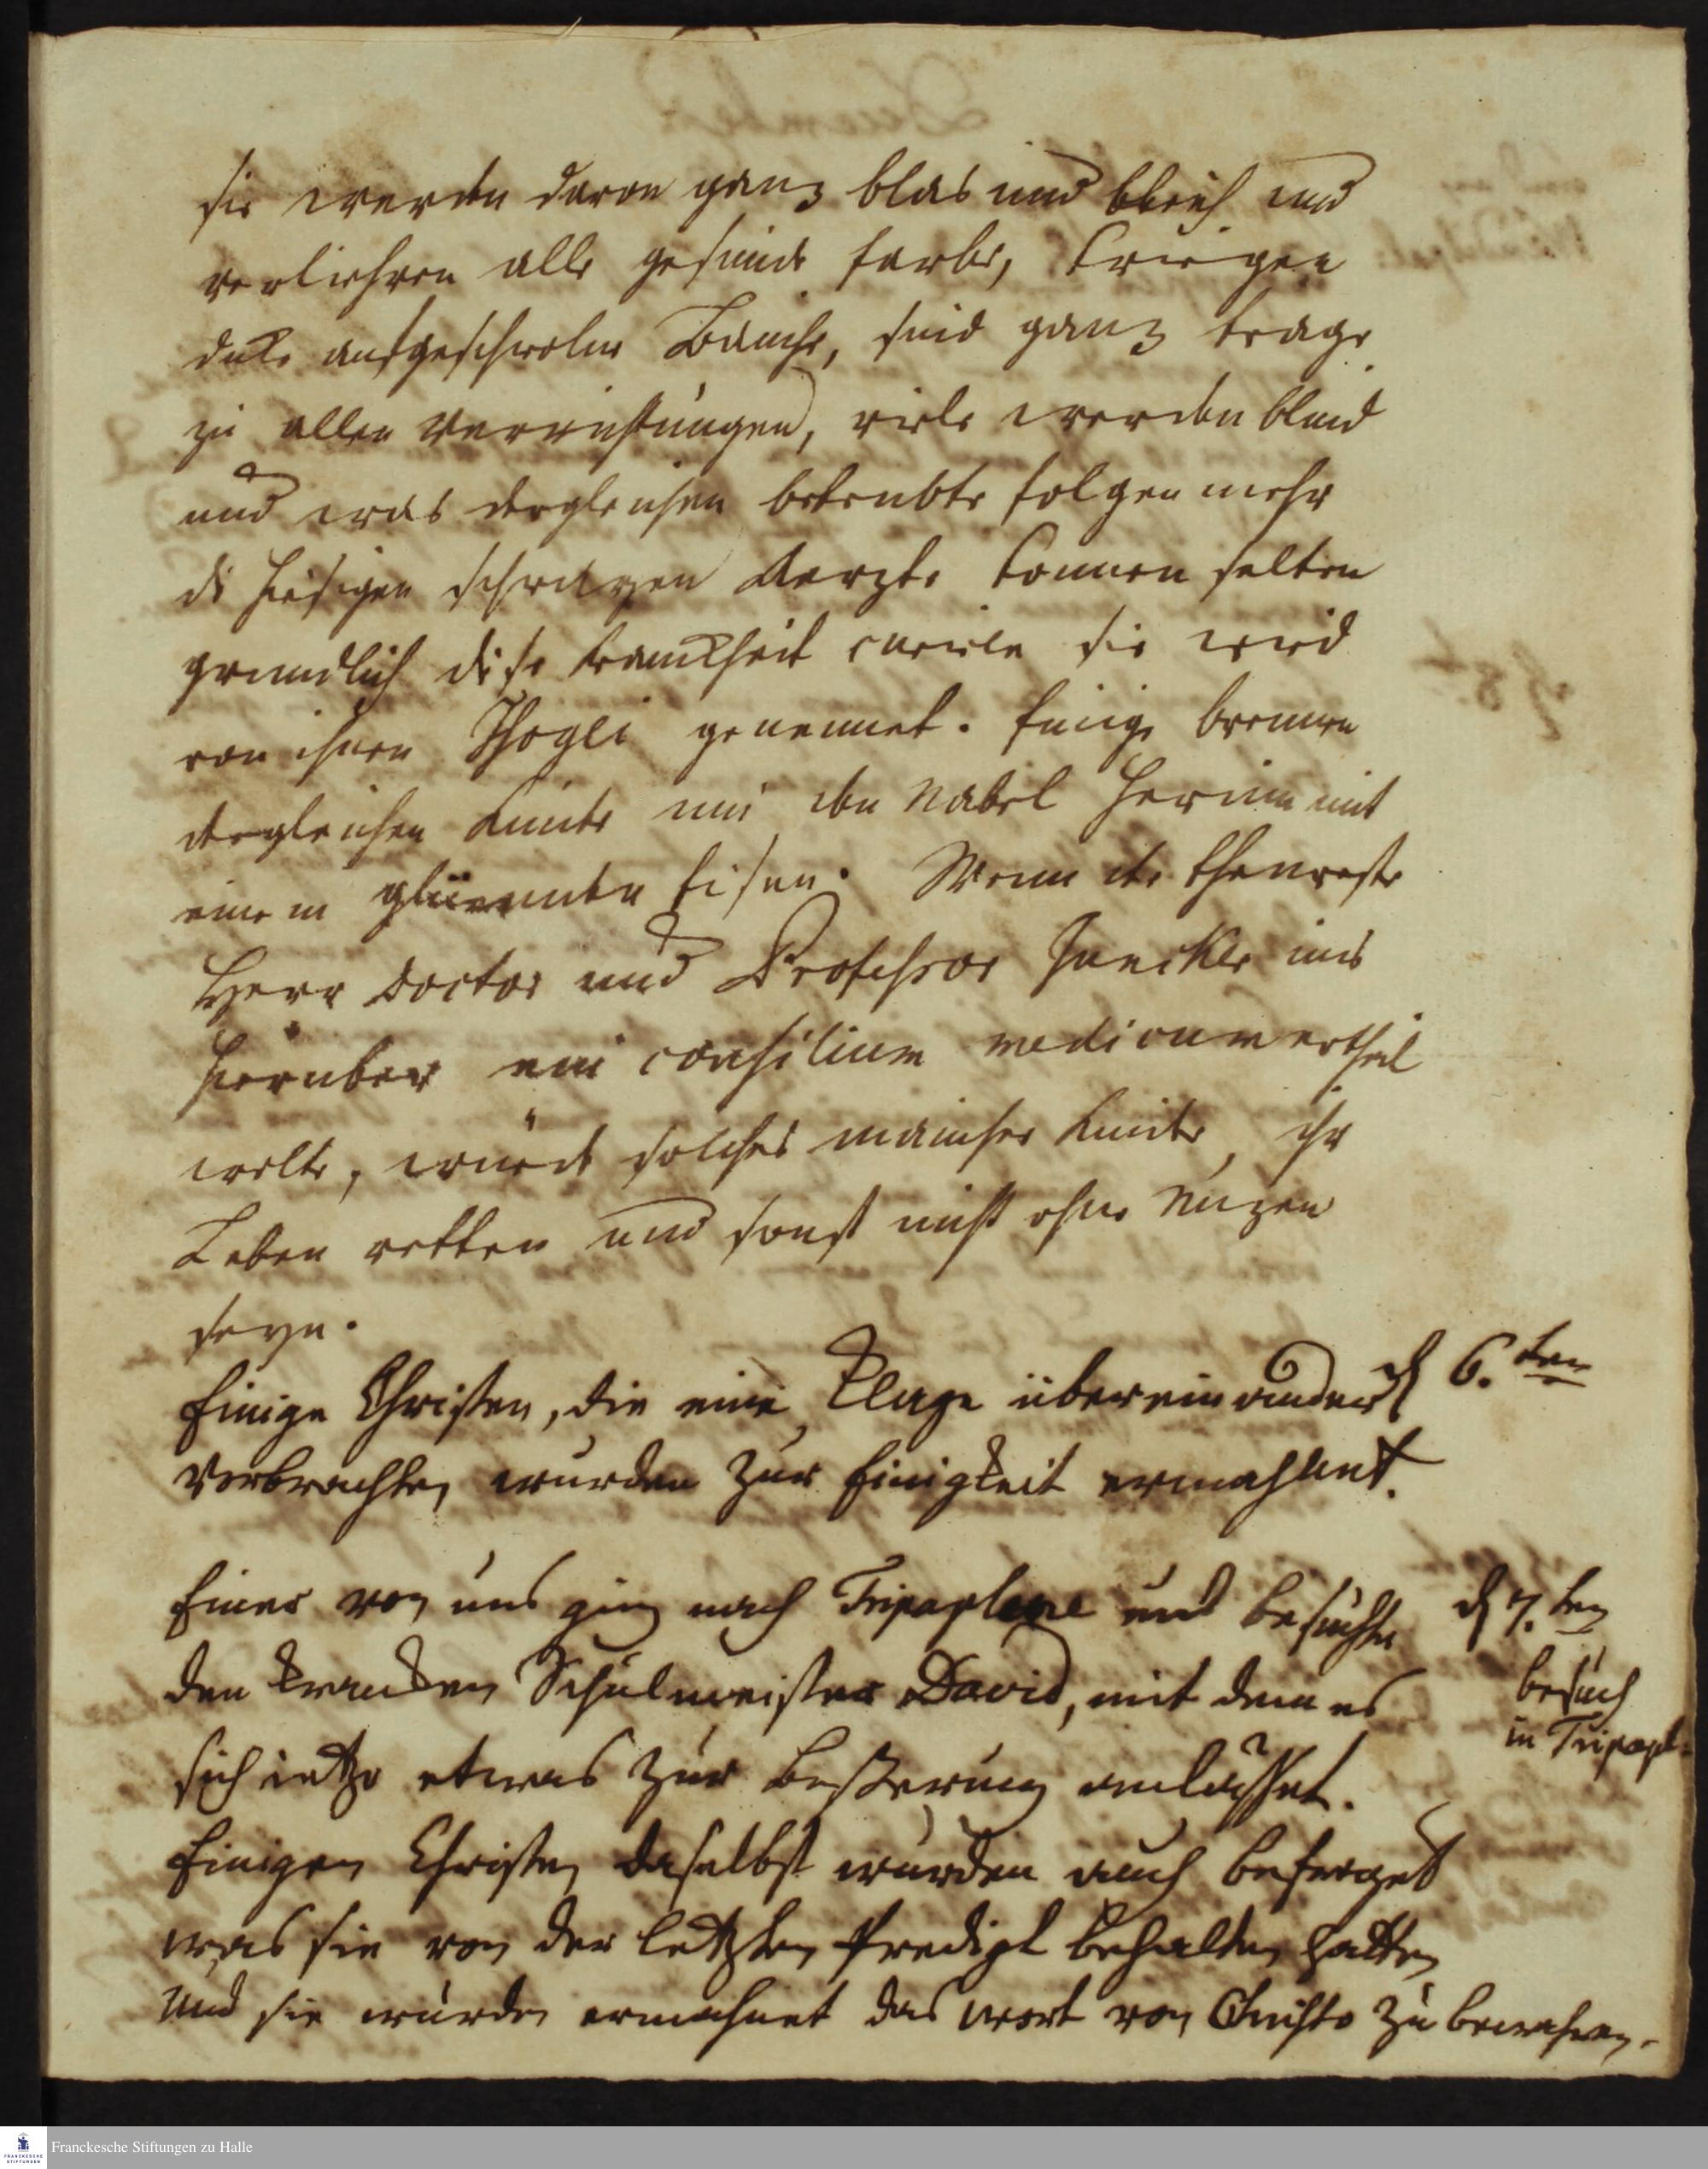 sie werden davon ganz blas und bleich und
verliehren alle gesunde farbe, kriegen
dicke aufgeschwolne Bauche, sind ganz trage
zu allen Verrichtungen, viele werden blind
und was dergleichen betrubte folgen mehr
di hiesigen schwarzen Aerzte konnen selten
grundlich diese krankheit curiren sie wird
von ihnen Shogei genennet. Einige brennen
dergleichen kinder um den Nabel herum mit
einem gluenden Eisen. Wenn der theureste
Herr Doctor und Professor Juncker uns
hieruber ein consilium medicum ertheilen
wolte, wurde solches mancher kinder ihr
Leben retten und sonst nicht ohne Nuzen
seyn.
Einige Christen, die eine Klage über einander d 6. ten
vorbrachten, wurden zur Einigkeit ermahnet.
Einer von uns ging nach Tripaplene und besuchte d 7. ten
den krancken Schulmeister David, mit dem es besuch
sich ietzo etwas zur Beßerung anlässet. in Tripapl-
Einigen Christen daselbst wurden auch befraget
was sie von der letzten Predigt behalten hatten
und sie wurden ermahnet das wort von Christo zu bewahren.
Franckesche Stiftungen zu Halle
FRANCKESCHE
STIFTUNGEN